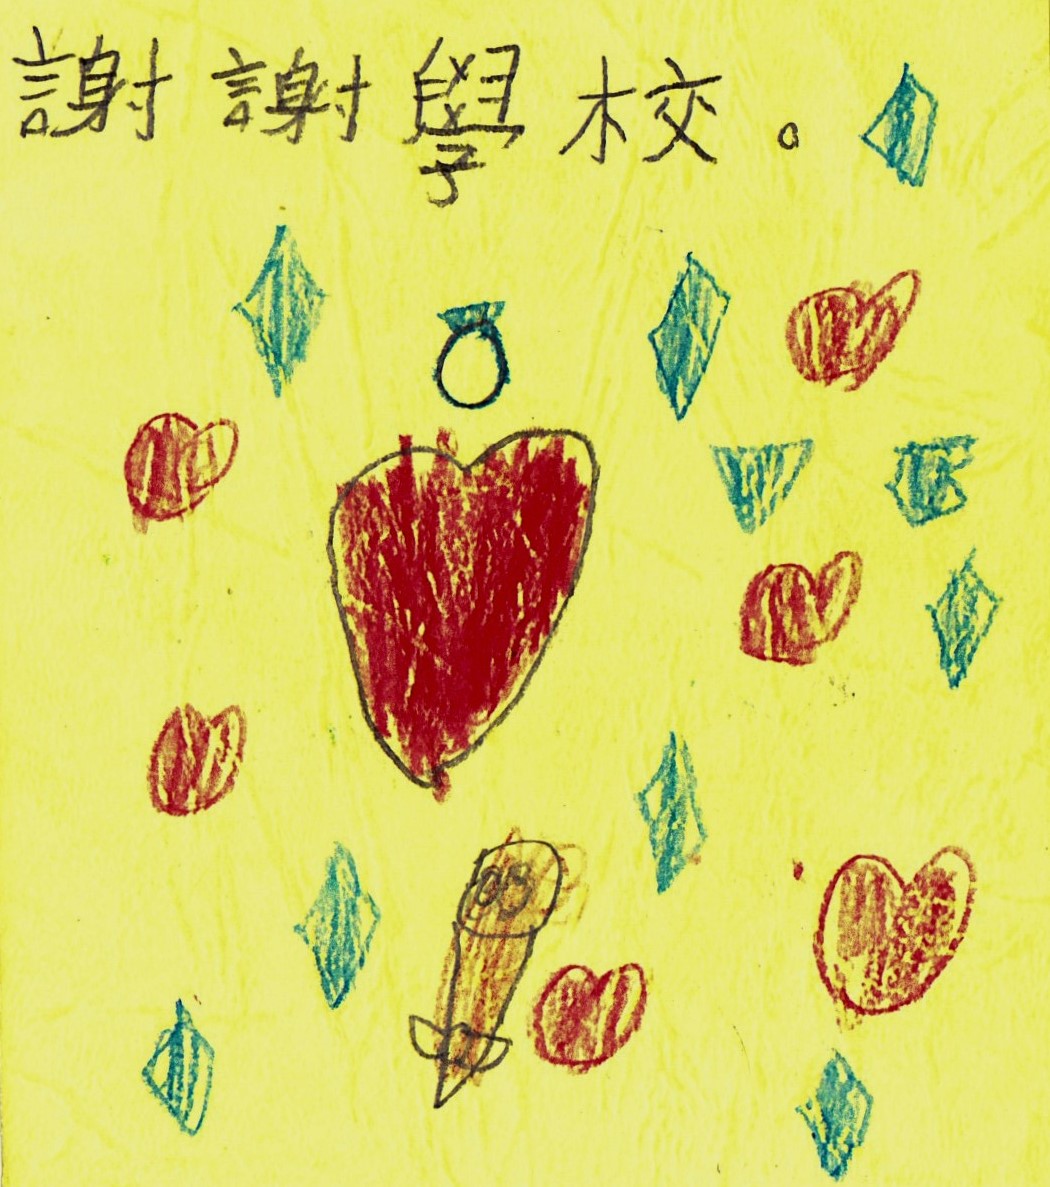 謝謝學校。